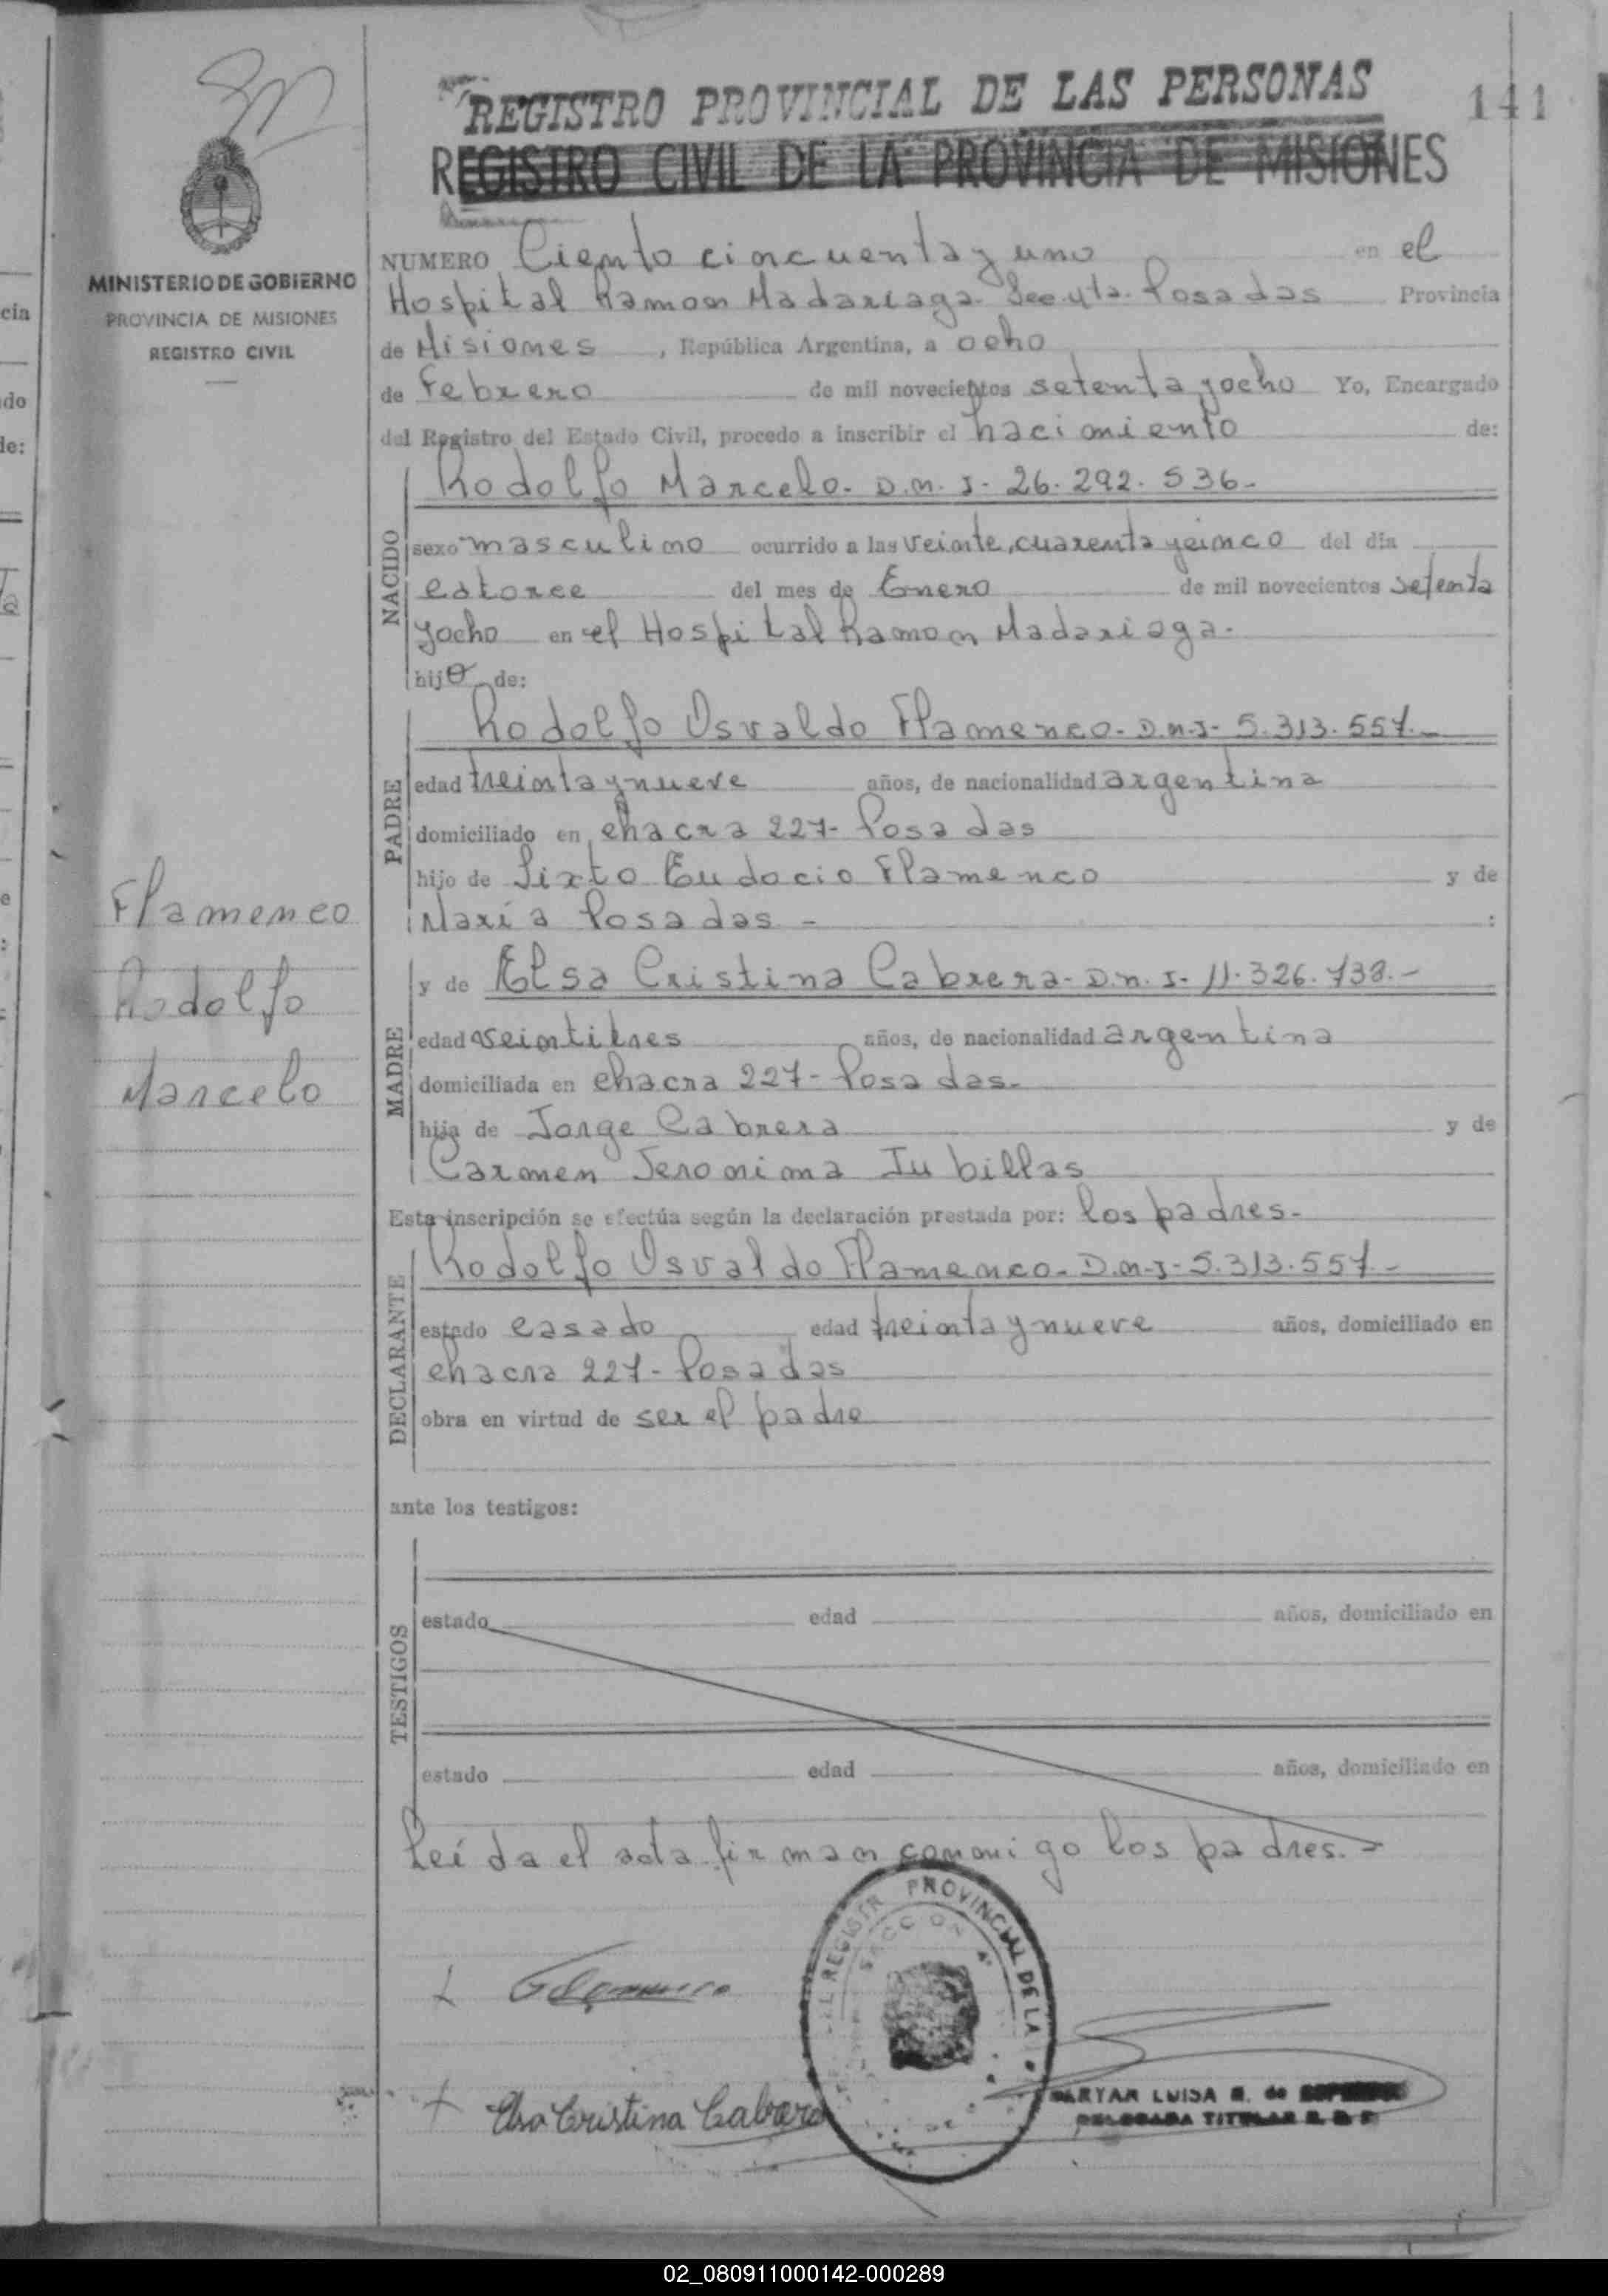 REGISTRO PROVINCIAL DE LAS PERSONAS
141
REGISTRO CIVIL DE LA PROVINCIA DE MISIONES
MINISTERIO DE GOBIERNO
PROVINCIA DE MISIONES
REGISTRO CIVIL
Flamenco
Rodolfo
Marcelo
NUMERO Ciento cincuenta y uno en el
Hospital Ramon Madariaga. Sec. 4ta. Posadas Provincia
de Misiones, República Argentina, a ocho
de Febrero de mil novecientos setenta y ocho Yo, Encargado
del Registro del Estado Civil, procedo a inscribir el nacimiento de:
NACIDO
Rodolfo Marcelo. D.N.I- 26.292.536-
sexo masculino ocurrido a las veinte, cuarenta y cinco del día
catorce del mes de Enero de mil novecientos setenta
y ocho en el Hospital Ramon Madariaga.
hijo de:
PADRE
Rodolfo Osvaldo Flamenco. D.N.I- 5.313.557.-
edad treinta y nueve años, de nacionalidad argentina
domiciliado en chacra 227- Posadas
hijo de Sixto Eudocio Flamenco y de
María Posadas - :
MADRE
y de Elsa Cristina Cabrera- D.N.I- 11.326.738.-
edad veintitres años, de nacionalidad argentina
domiciliada en chacra 227- Posadas.
hija de Jorge Cabrera y de
Carmen Jeronima Jubillas
Esta inscripción se efectúa según la declaración prestada por: los padres.
DECLARANTE
Rodolfo Osvaldo Flamenco. D.N.I- 5.313.557.-
estado casado edad treinta y nueve años, domiciliado en
chacra 227- Posadas
obra en virtud de ser el padre
ante los testigos:
TESTIGOS
estado edad años, domiciliado en
estado edad años, domiciliado en
Leída el acta firman conmigo los padres.-
REGISTR PROVINCIAL DE LA
SECCION 4
Flamenco
Elsa Cristina Cabrera
LUISA de
DELEGADA TITULAR
02_080911000142-000289